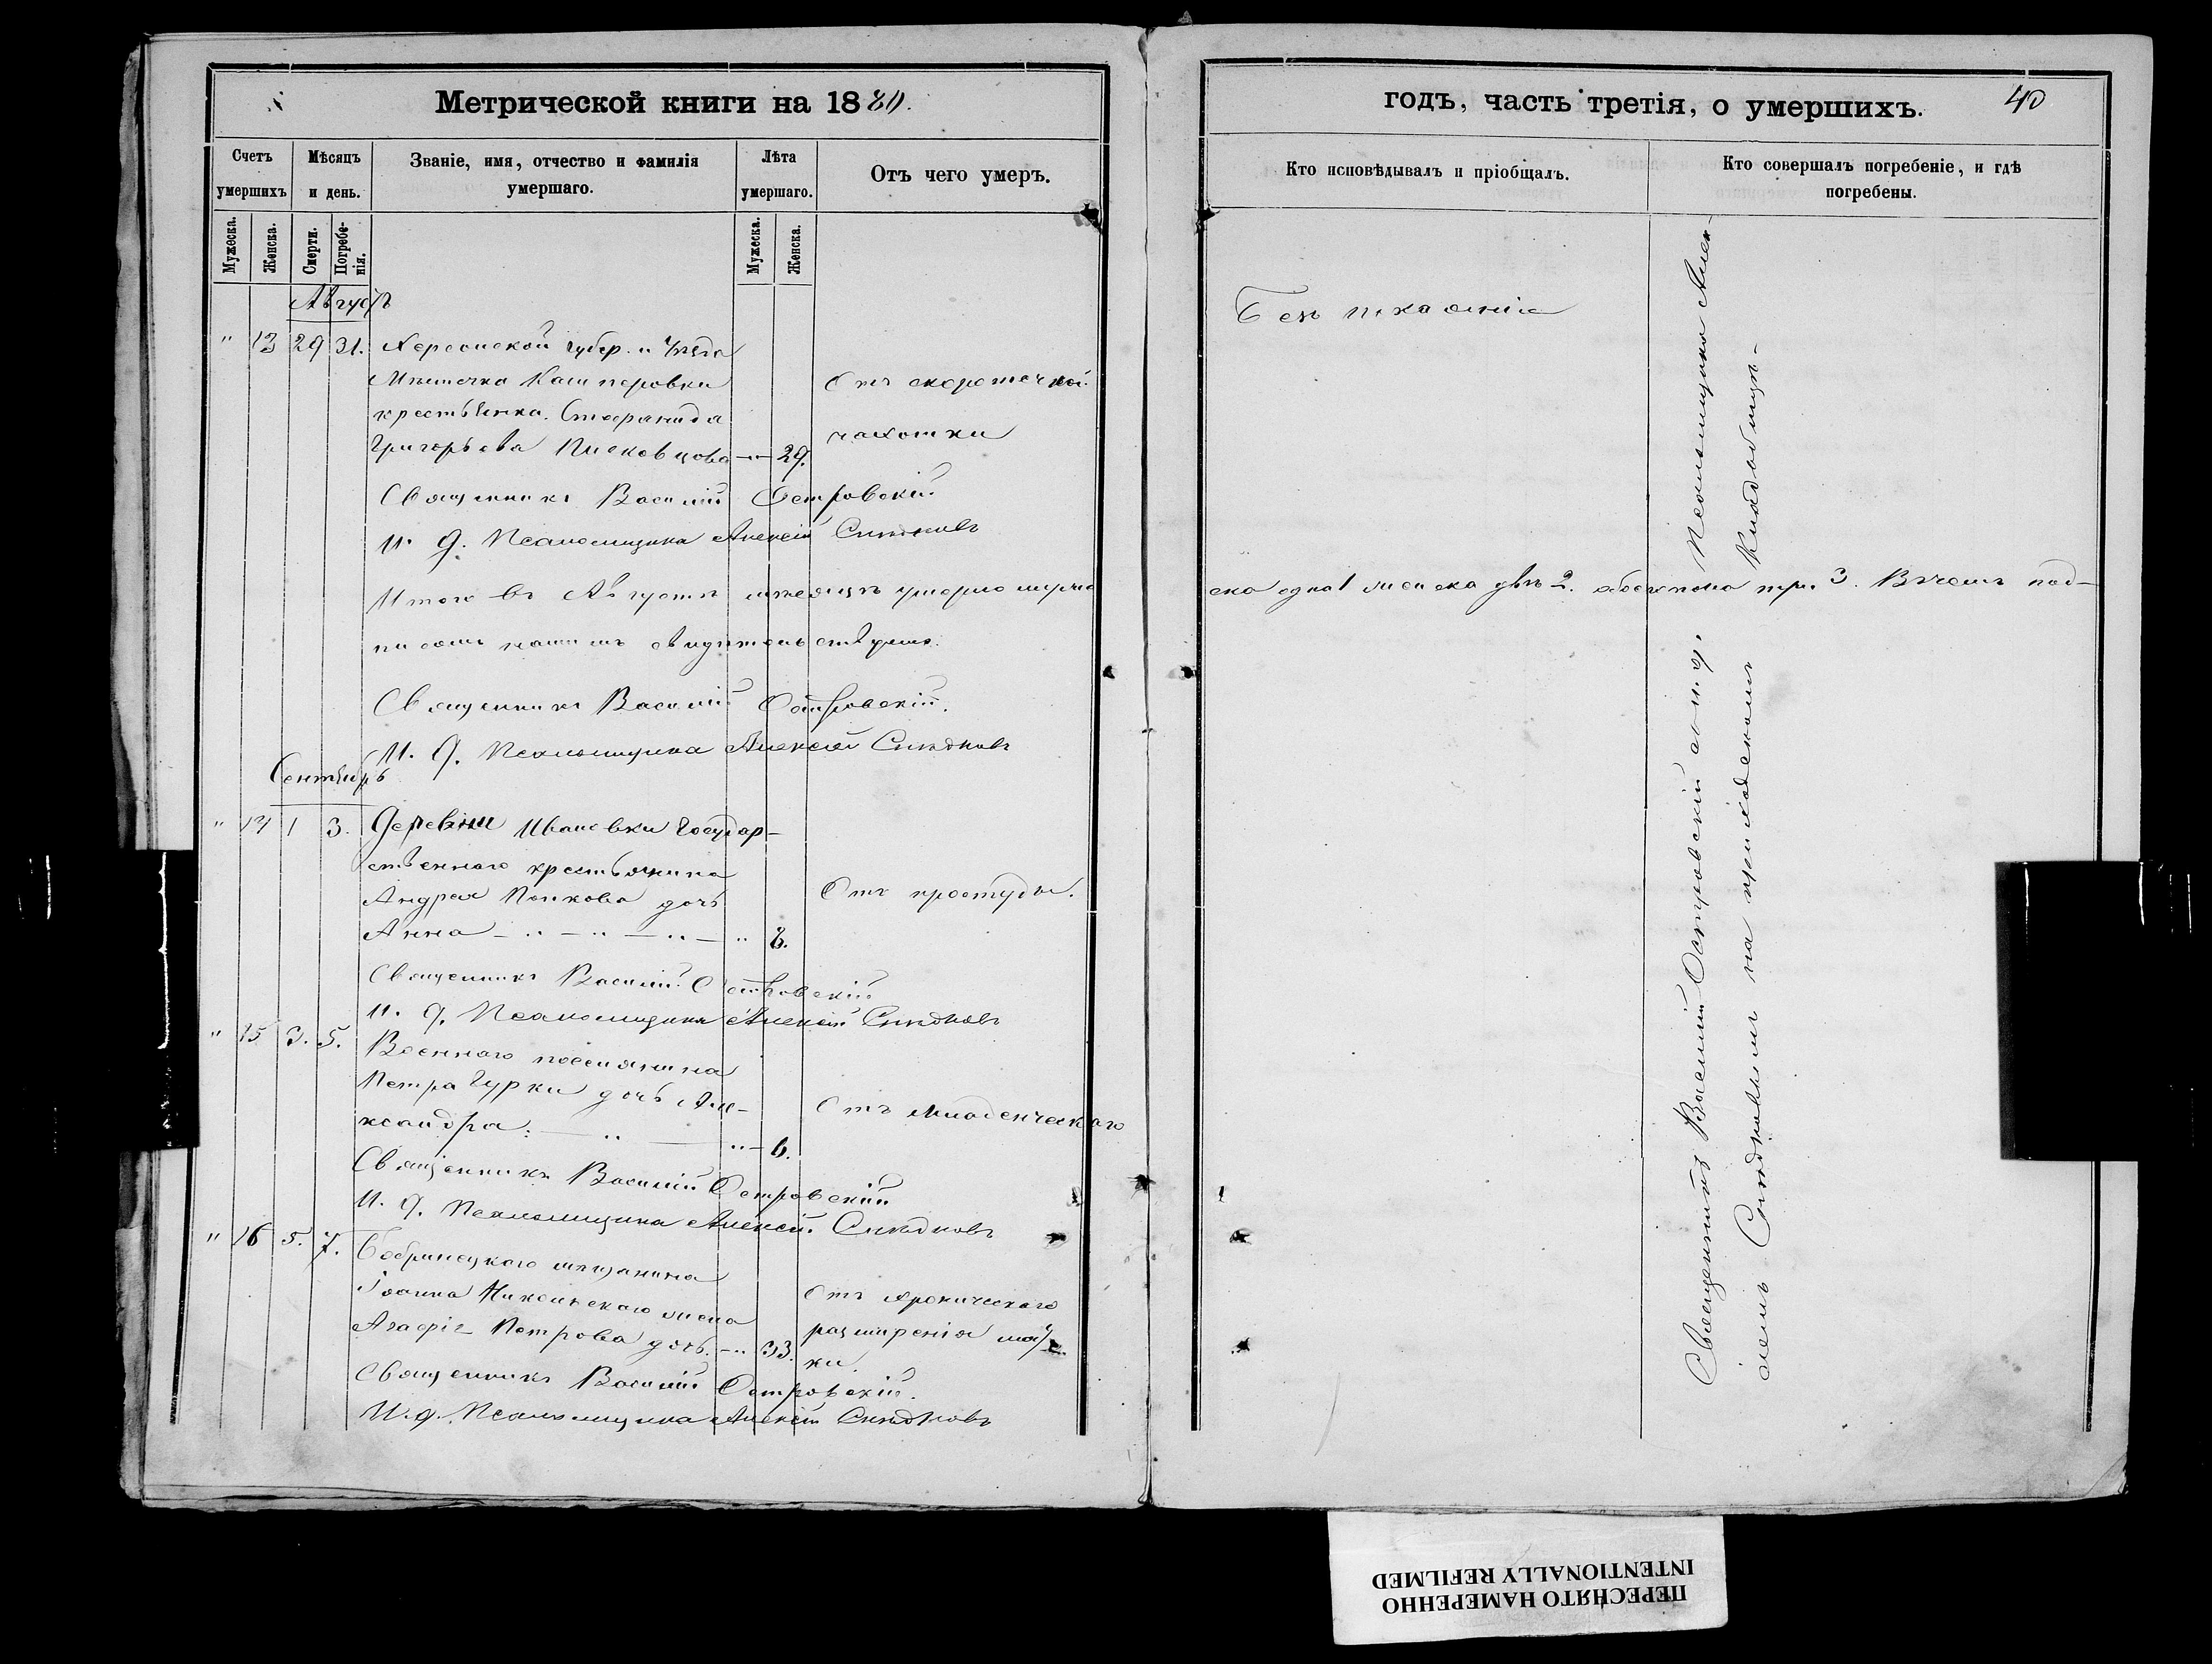 Метрической книги на 1880.
Счетъ умершихъ
Мѣсяцъ и день.
Званіе, имя, отчество и фамилія умершаго.
Лѣта умершаго.
Отъ чего умеръ.
Мужеска.
Женска.
Смерти.
Погребенія.
Мужеска.
Женска.
Августъ
" 13 29 31. Херсонской губер. и Уѣзда
Мѣстечка Кашперовки
крестьянка Стефанида
Григорьева -"- 29.
Отъ скоротечной
чахотки
Священникъ Василій Островскій
И. д. Псаломщика Алексѣй
Итого въ Августѣ мѣсяцѣ умерло муже
ска одна 1 женска двѣ 2. обоего пола три 3. Въ чемъ под-
писомъ нашимъ свидѣтельствуемъ.
Священникъ Василій Островскій.
И. д. Псаломщика Алексѣй
Сентябрь
" 14 1 3. Деревни Ивановки Государ-
ственнаго крестьянина
Андрея Попкова дочь
Анна - " - " - " - " 8.
Отъ простуды.
Священникъ Василій Островскій
И. д. Псаломщика Алексѣй
" 15 3. 5. Военнаго поселянина
Петра Гурки дочь Але-
ксандра: - " - " - 6.
Отъ младенческаго
Священникъ Василій Островскій
И. д. Псаломщика Алексѣй
" 16 5. 7. Бобринецкаго мѣщанина
Іоанна жена
Агафія Петрова дочь. -" 33.
Отъ хроническаго
расширенія мат-
ки.
Священникъ Василій Островскій.
И. д. Псаломщика Алексѣй
годъ, часть третія, о умершихъ.
40
Кто исповѣдывалъ и пріобщалъ.
Кто совершалъ погребеніе, и гдѣ погребены.
Безъ покаянія
Священникъ Василій Островскій съ и. д. Псаломщика Алек-
сѣемъ на приходскомъ Кладбищѣ-
ПЕРЕСНЯТО НАМЕРЕННО
INTENTIONALLY REFILMED